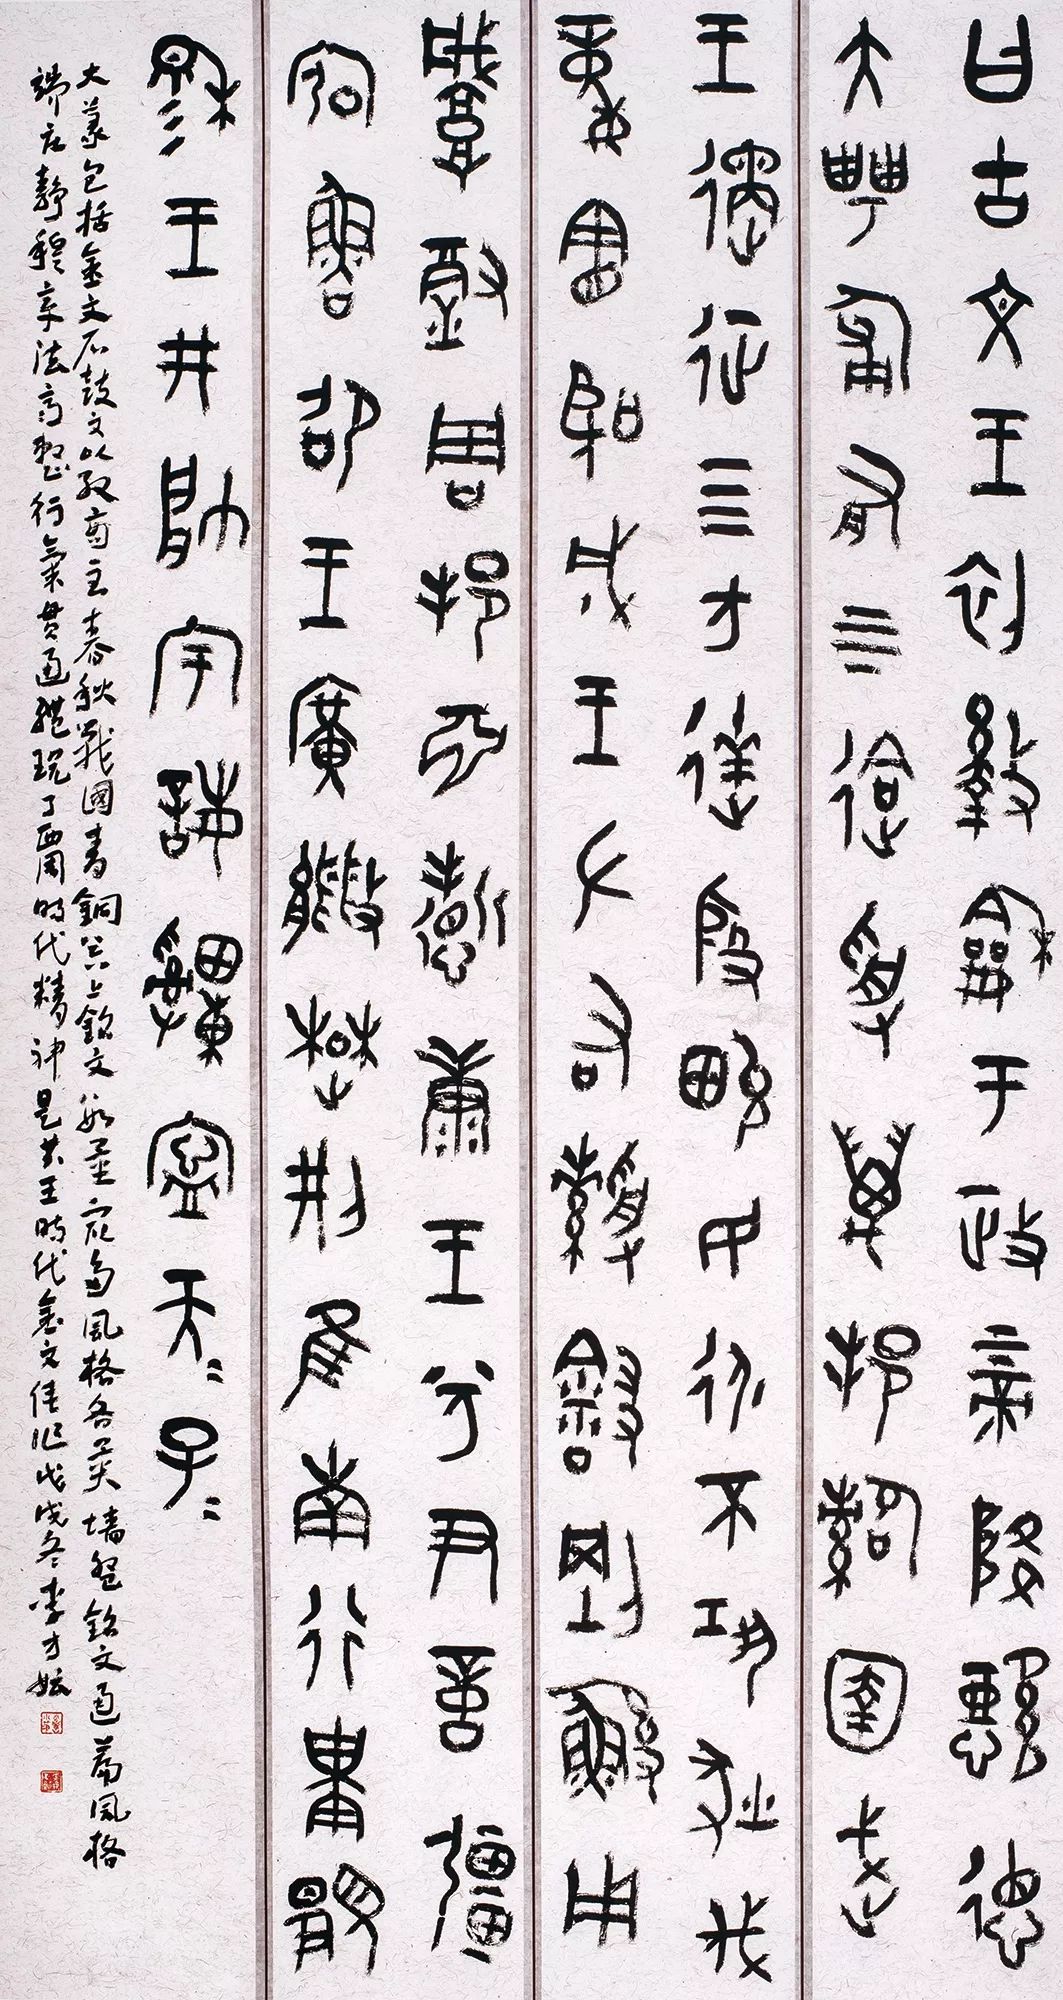 曰古文王初盭龢于政上帝降懿德
大甹匍有上下迨受萬邦䚄圉武
王遹征四方達殷畯民永不巩狄伐
憲聖成王左右綬會剛鯀用
肇徹周邦淵哲康王兮尹啻彊
宖魯邵王廣㪤楚荊隹南行祗顯
穆王井帥宇誨申寧天=子=
大篆包括金文石鼓文以及商至春秋戰國青銅器上銘文數量衆多風格各異墙盤銘文通篇風格
端莊静穆章法齊整行氣貫通體現了西周時代精神是共王時代金文佳作戊戌冬李方